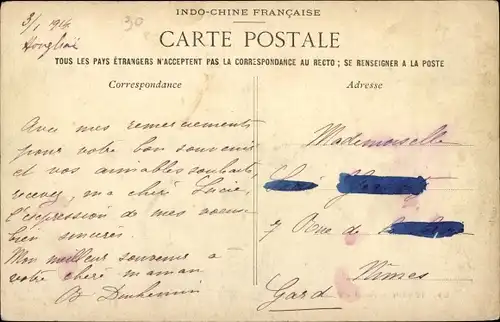 INDO-CHINE FRANÇAISE
3/1 1916
30
CARTE POSTALE
TOUS LES PAYS ÉTRANGERS N'ACCEPTENT PAS LA CORRESPONDANCE AU RECTO ; SE RENSEIGNER A LA POSTE
Correspondance
Adresse
Avec mes remerciements
pour votre bon souvenir
et vos aimables souhaits,
recevez, ma chère Lucie,
l'expression de mes voeux
bien sincères.
Mon meilleur souvenir à
votre chère maman
Mademoiselle
7 Rue de
Nîmes
Gard